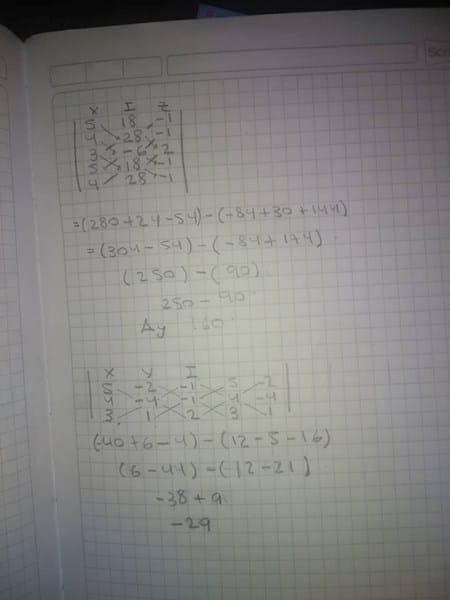 X I Z
5 18 -1
4 28 -1
3 -6 2
5 18 -1
4 28 -1
=(280+24-54)-(-84+30+144)
=(304-54)-(-84+174)
(250)-(90)
250-90
Δy 160
X Y I
5 -2 -1 5 -2
4 -4 -1 4 -4
3 1 2 3 1
(-40+6-4)-(12-5-16)
(6-44)-(-12-21)
-38+9
-29